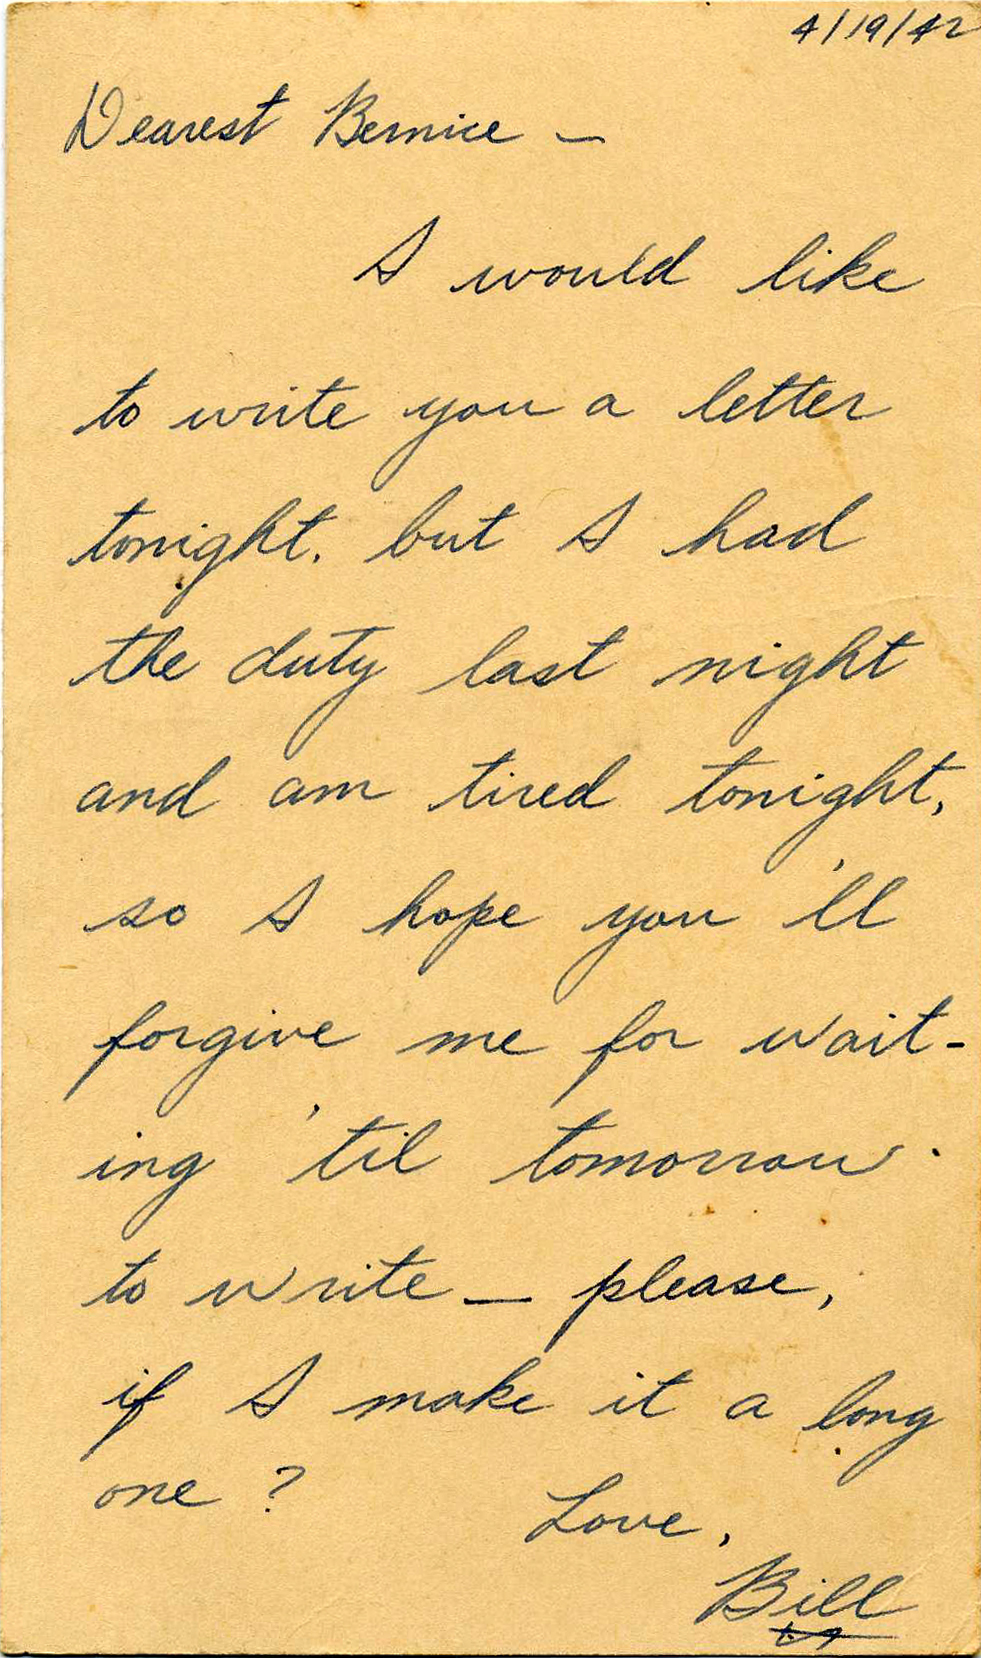 4/19/42
Dearest Bernice —
I would like
to write you a letter
tonight, but I had
the duty last night
and am tired tonight,
so I hope you'll
forgive me for wait-
ing 'til tomorrow
to write — please,
if I make it a long
one?
Love,
Bill